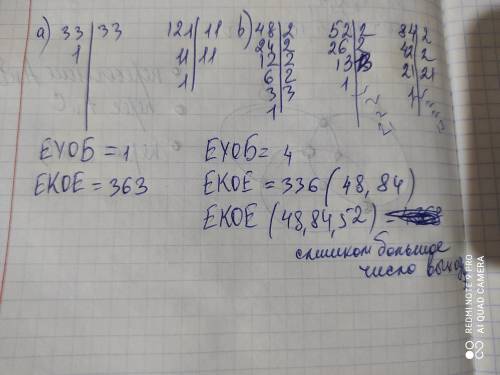 a) 33 | 33
1
121 | 11
11 | 11
1
b) 48 | 2
24 | 2
12 | 2
6 | 2
3 | 3
1
52 | 2
26 | 2
13
1
84 | 2
42 | 2
21 | 21
1
ЕУОБ = 1
ЕКОЕ = 363
ЕУОБ = 4
ЕКОЕ = 336 (48, 84)
ЕКОЕ (48, 84, 52) =
слишком большое
число
REDMI NOTE 9 PRO
AI QUAD CAMERA